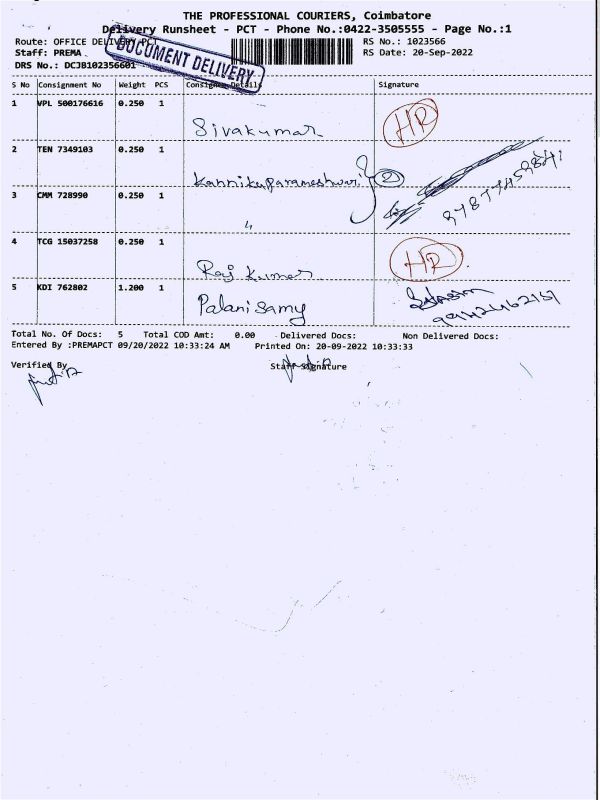 THE PROFESSIONAL COURIERS, Coimbatore
Delivery Runsheet - PCT - Phone No.:0422-3505555 - Page No.:1
Route: OFFICE DELIVERY PCT
RS No.: 1023566
Staff: PREMA
RS Date: 20-Sep-2022
DRS No.: DCJB102356601
DOCUMENT DELIVERY
S No Consignment No Weight PCS Consignee Details Signature
1 VPL 500176616 0.250 1
Sivakumar HR
2 TEN 7349103 0.250 1
Kannikaparameshwari 2
3 CMM 728990 0.250 1
〃
4 TCG 15037258 0.250 1
Raj kumar HR
5 KDI 762802 1.200 1
Palanisamy 9942462157
Total No. Of Docs: 5 Total COD Amt: 0.00 Delivered Docs: Non Delivered Docs:
Entered By :PREMAPCT 09/20/2022 10:33:24 AM Printed On: 20-09-2022 10:33:33
Verified By Staff Signature